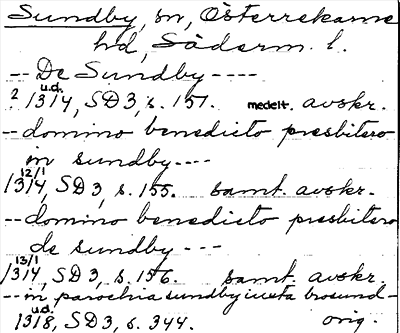 Sundby, sn, Österrekarne
hd, Söderm. l.
-- De Sundby ----
? 1314 u.d., SD 3, s. 151. medelt. avskr.
-- domino benedicto presbitero
in sundby ---
1314 12/1, SD 3, s. 155. samt. avskr.
-- domino benedicto presbitero
de sundby ---
1314 13/1, SD 3, s. 156. samt. avskr.
-- in parochia sundby iuxta brosund-
1318 u.d., SD 3, s. 344. orig.